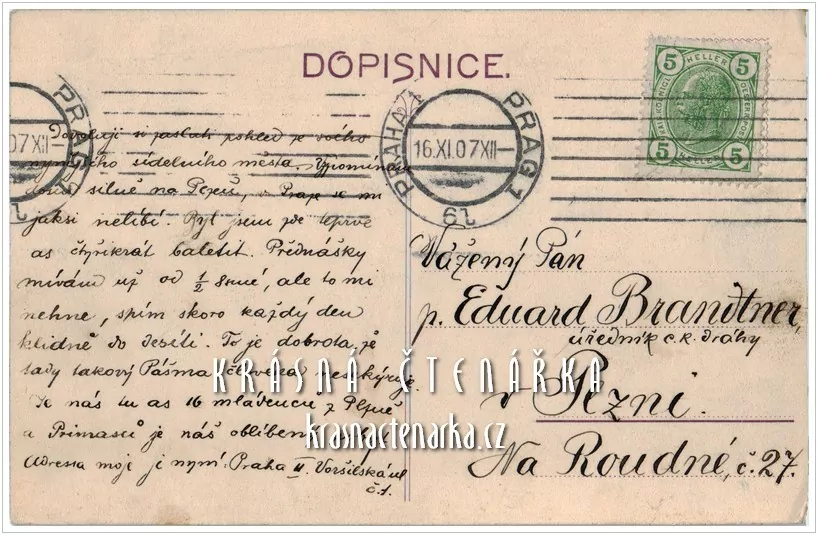 DOPISNICE.
PRAG
07XII–
PRAHA 1
PRAG 1
16.XI.07XII–
61
5 HELLER 5
5 HELLER 5
Dovoluji si poslati pohled z
nynějšího sídelního města. Vzpomínám
silně na Plzeň, v Praze se mi
jaksi nelíbí. Byl jsem zde teprve
as čtyřikrát Přednášky
mívám už od ½ 8mé, ale to mi
nehne, spím skoro každý den
klidně do desíti. To je dobrota, že
tady takový Pášma člověka
Je nás tu as 16 mládenců z Plzně
a Primasů je náš oblíbený
Adressa moje je nyní: Praha II. Voršilská ul
č.1.
Vážený Pán
p. Eduard Brandtner,
úředník c.k. dráhy
v Plzni.
Na Roudné, č. 27.
KRÁSNÁ ČTENÁŘKA
krasnactenarka.cz